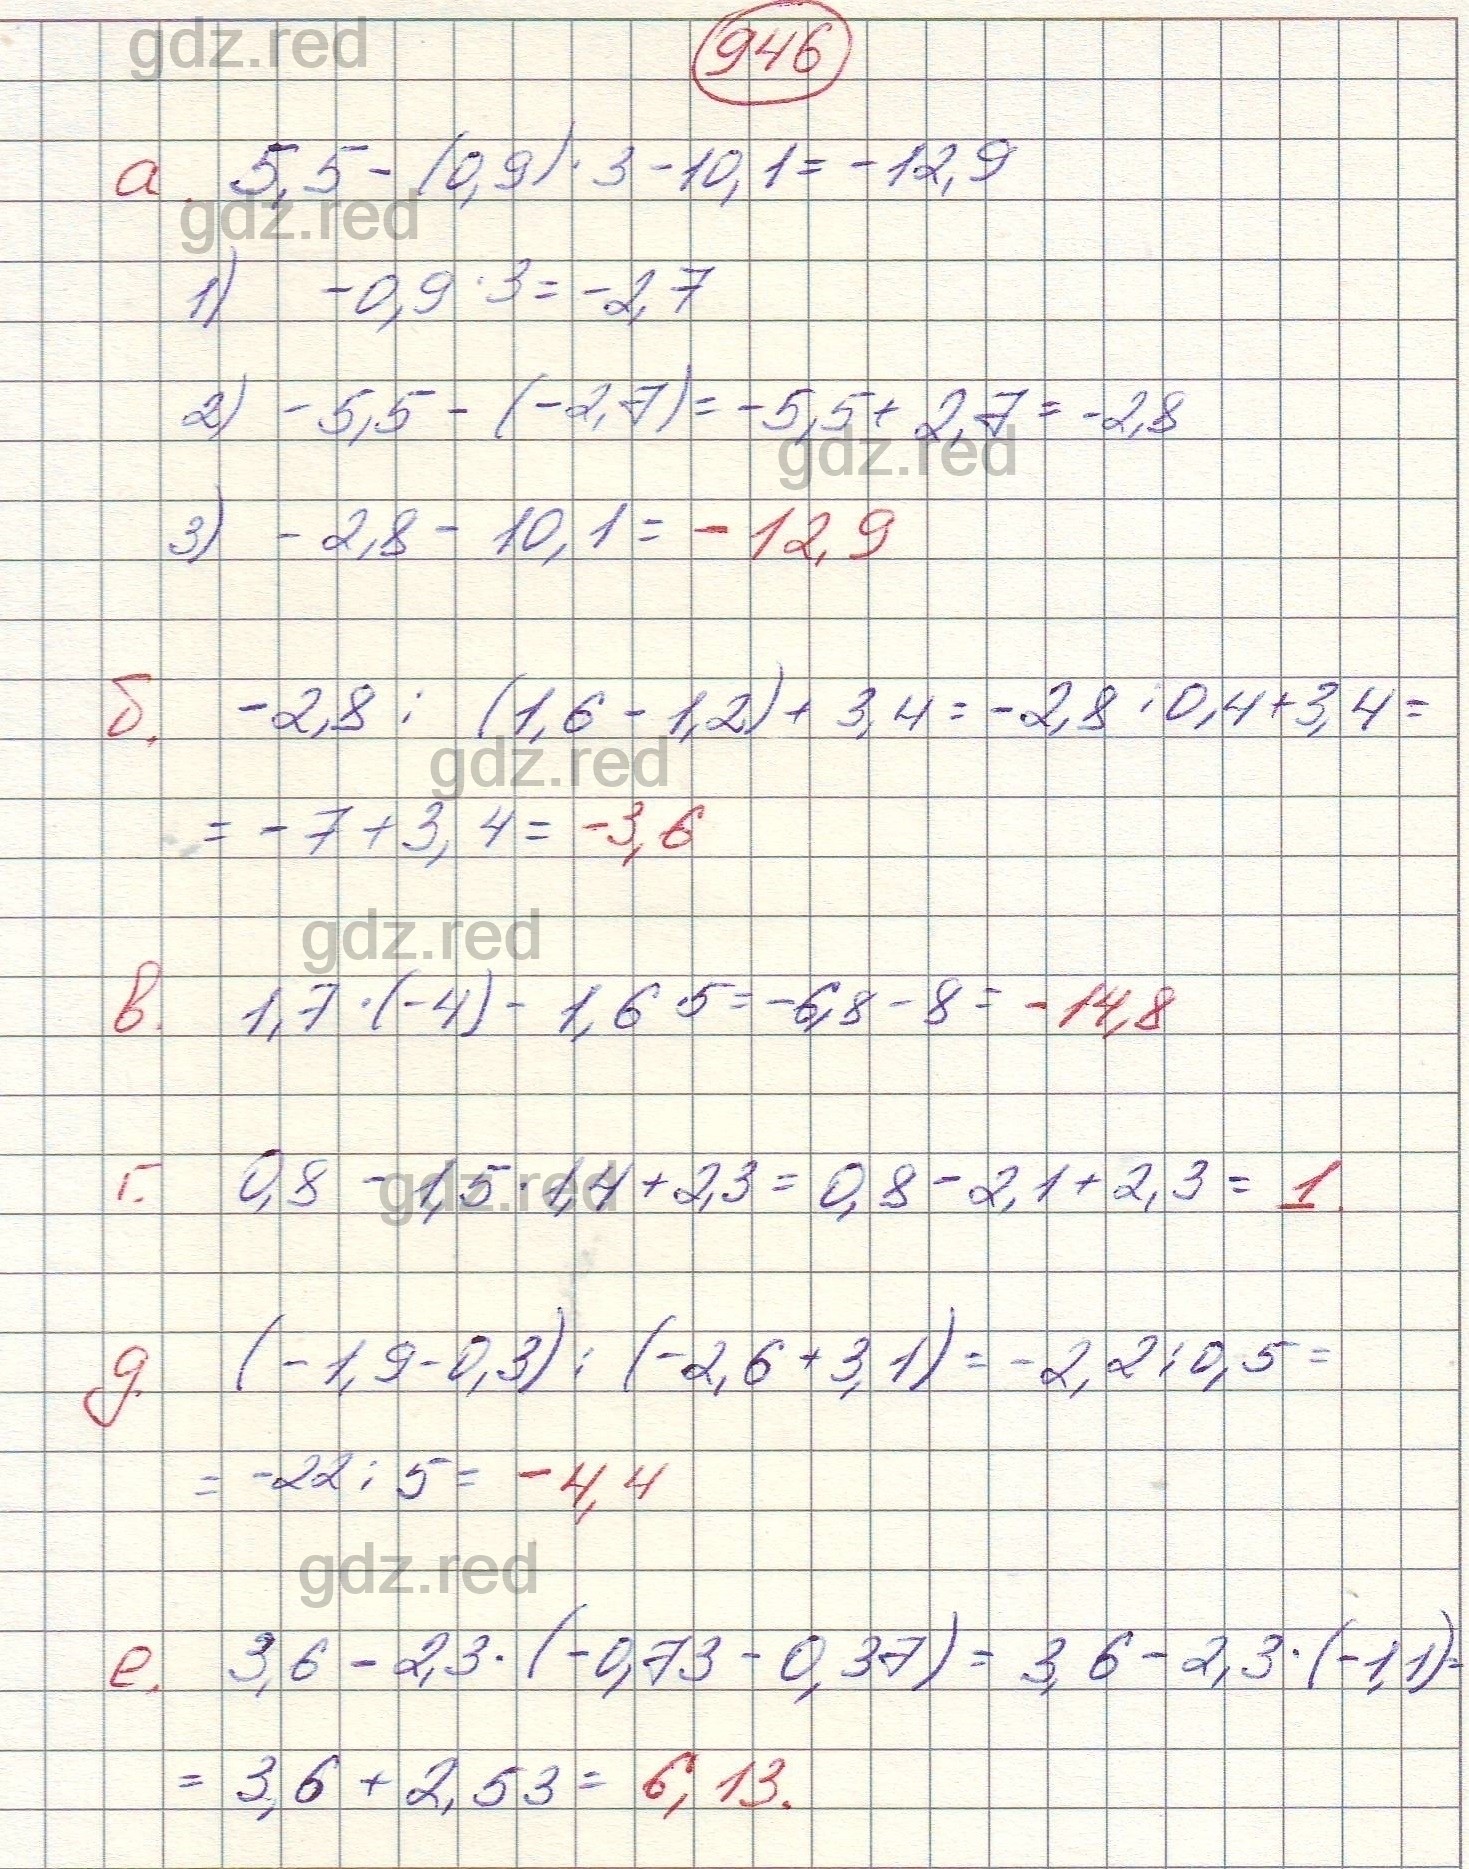 gdz.red
946
а. 5,5 - (0,9) · 3 - 10,1 = -12,9
gdz.red
1) -0,9 · 3 = -2,7
2) -5,5 - (-2,7) = -5,5 + 2,7 = -2,8
gdz.red
3) -2,8 - 10,1 = -12,9
б. -2,8 : (1,6 - 1,2) + 3,4 = -2,8 : 0,4 + 3,4 =
gdz.red
= -7 + 3,4 = -3,6
gdz.red
в. 1,7 · (-4) - 1,6 · 5 = -6,8 - 8 = -14,8
г. 0,8 - 1,5 · 1,4 + 2,3 = 0,8 - 2,1 + 2,3 = 1.
gdz.red
д. (-1,9 - 0,3) : (-2,6 + 3,1) = -2,2 : 0,5 =
= -22 : 5 = -4,4
gdz.red
е. 3,6 - 2,3 · (-0,73 - 0,37) = 3,6 - 2,3 · (-1,1) =
= 3,6 + 2,53 = 6,13.